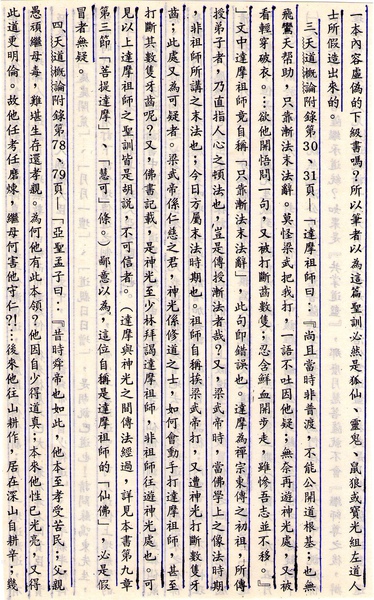 一本內容虛偽的下級書嗎？所以筆者以為這篇聖訓必然是狐仙、靈鬼、鼠狼或寶光組左道人
士所假造出來的。
三、天道概論附錄第30、31頁—「達摩祖師曰：『尚且當時非普渡，不能公開道根基；也無
飛鸞天幫助，只靠漸法末法辭。莫怪梁武把我打，一語不吐因他疑；無奈再遊神光處，又被
看輕穿破衣。…欲他開悟問一句，又被打斷齒數隻；忍含鮮血開步走，雖慘吾志並不移。』
」文中達摩祖師竟自稱「只靠漸法末法辭」，此句即錯誤也。達摩為禪宗東傳之初祖，所傳
授弟子者，乃直指人心之頓法也，豈是傳授漸法者哉？又，梁武帝時，當佛學上之像法時期
，非祖師所講之末法也；今日方屬末法時期也。祖師自稱挨梁武帝打，又遭神光打斷數隻牙
齒；此處又為可疑者。梁武帝係仁慈之君，神光係修道之士，如何會動手打達摩祖師，甚至
打斷其數隻牙齒呢？又，佛書記載，是神光至少林拜謁達摩祖師，非祖師往遊神光處也。可
見以上達摩祖師之聖訓皆是胡說，不可信者。（達摩與神光之間傳法經過，詳見本書第九章
第三節「菩提達摩」、「慧可」條。）鄙意以為，這位自稱是達摩祖師的「仙佛」，必是假
冒者無疑。
四、天道概論附錄第78、79頁—「亞聖孟子曰：『昔時舜帝也如此，他本至孝受苦民；父親
愚頑繼母毒，難堪生存還孝親。為何他有此本領？他因自少得道真；本來他性已光亮，又得
此道更明倫。故他任考任磨煉，繼母何害他守仁？！…後來他往山耕作，居在深山自耕辛；幾